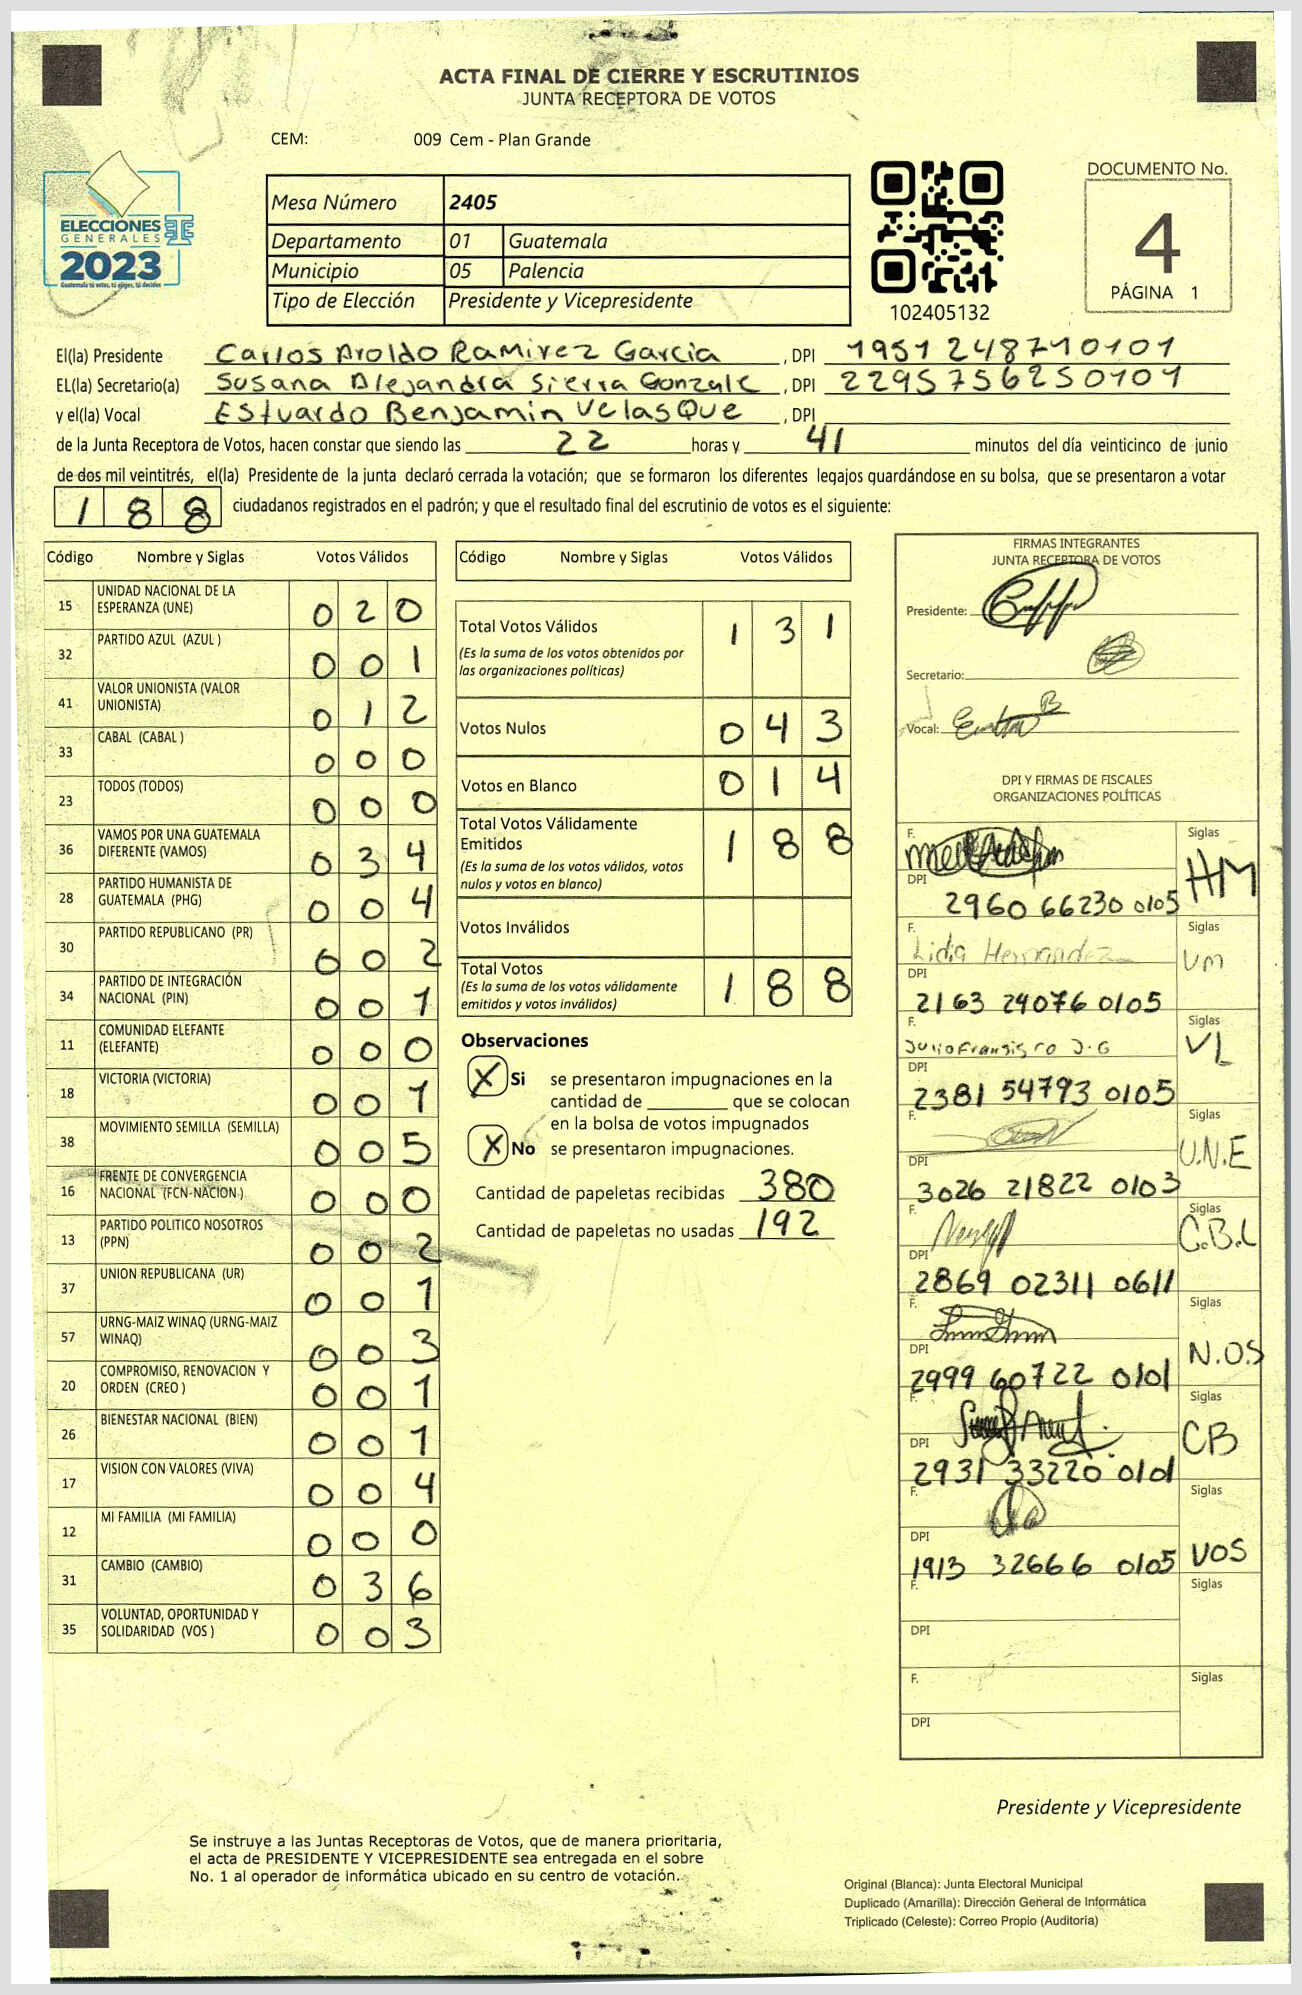 ACTA FINAL DE CIERRE Y ESCRUTINIOS
JUNTA RECEPTORA DE VOTOS
CEM: 009 Cem - Plan Grande
ELECCIONES
GENERALES
2023
Guatemala tú votas, tú eliges, tú decides
Mesa Número 2405
Departamento 01 Guatemala
Municipio 05 Palencia
Tipo de Elección Presidente y Vicepresidente
102405132
DOCUMENTO No.
4
PÁGINA 1
El(la) Presidente Carlos Aroldo Ramirez Garcia , DPI 1951248710101
EL(la) Secretario(a) Susana Alejandra Sierra Gonzale , DPI 2295756250101
y el(la) Vocal Estuardo Benjamin Velasque , DPI
de la Junta Receptora de Votos, hacen constar que siendo las 22 horas y 41 minutos del día veinticinco de junio
de dos mil veintitrés, el(la) Presidente de la junta declaró cerrada la votación; que se formaron los diferentes legajos guardándose en su bolsa, que se presentaron a votar
188 ciudadanos registrados en el padrón; y que el resultado final del escrutinio de votos es el siguiente:
Código Nombre y Siglas Votos Válidos
15 UNIDAD NACIONAL DE LA ESPERANZA (UNE) 020
32 PARTIDO AZUL (AZUL ) 001
41 VALOR UNIONISTA (VALOR UNIONISTA) 012
33 CABAL (CABAL ) 000
23 TODOS (TODOS) 000
36 VAMOS POR UNA GUATEMALA DIFERENTE (VAMOS) 034
28 PARTIDO HUMANISTA DE GUATEMALA (PHG) 004
30 PARTIDO REPUBLICANO (PR) 002
34 PARTIDO DE INTEGRACIÓN NACIONAL (PIN) 001
11 COMUNIDAD ELEFANTE (ELEFANTE) 000
18 VICTORIA (VICTORIA) 001
38 MOVIMIENTO SEMILLA (SEMILLA) 005
16 FRENTE DE CONVERGENCIA NACIONAL (FCN-NACION ) 000
13 PARTIDO POLITICO NOSOTROS (PPN) 002
37 UNION REPUBLICANA (UR) 001
57 URNG-MAIZ WINAQ (URNG-MAIZ WINAQ) 003
20 COMPROMISO, RENOVACION Y ORDEN (CREO ) 001
26 BIENESTAR NACIONAL (BIEN) 001
17 VISION CON VALORES (VIVA) 004
12 MI FAMILIA (MI FAMILIA) 000
31 CAMBIO (CAMBIO) 036
35 VOLUNTAD, OPORTUNIDAD Y SOLIDARIDAD (VOS ) 003
Código Nombre y Siglas Votos Válidos
Total Votos Válidos 131
(Es la suma de los votos obtenidos por
las organizaciones políticas)
Votos Nulos 043
Votos en Blanco 014
Total Votos Válidamente
Emitidos 188
(Es la suma de los votos válidos, votos
nulos y votos en blanco)
Votos Inválidos
Total Votos 188
(Es la suma de los votos válidamente
emitidos y votos inválidos)
Observaciones
X Si se presentaron impugnaciones en la
cantidad de ________ que se colocan
en la bolsa de votos impugnados
X No se presentaron impugnaciones.
Cantidad de papeletas recibidas 380
Cantidad de papeletas no usadas 192
FIRMAS INTEGRANTES
JUNTA RECEPTORA DE VOTOS
Presidente:
Secretario:
Vocal:
DPI Y FIRMAS DE FISCALES
ORGANIZACIONES POLÍTICAS
F. Siglas HM
DPI 2960 66230 0105
F. Lidia Hernandez Siglas VM
DPI 2163 24076 0105
F. Julio Fransisco J-G Siglas VL
DPI 2381 54793 0105
F. Siglas U.N.E
DPI 3026 21822 0103
F. Siglas C.B.L
DPI 2869 02311 0611
F. Siglas N.O.S
DPI 2999 60722 0101
F. Siglas CB
DPI 2931 33220 0101
F. Siglas VOS
DPI 1913 32666 0105
F. Siglas
DPI
F. Siglas
DPI
Presidente y Vicepresidente
Se instruye a las Juntas Receptoras de Votos, que de manera prioritaria,
el acta de PRESIDENTE Y VICEPRESIDENTE sea entregada en el sobre
No. 1 al operador de informática ubicado en su centro de votación.
Original (Blanca): Junta Electoral Municipal
Duplicado (Amarilla): Dirección General de Informática
Triplicado (Celeste): Correo Propio (Auditoría)